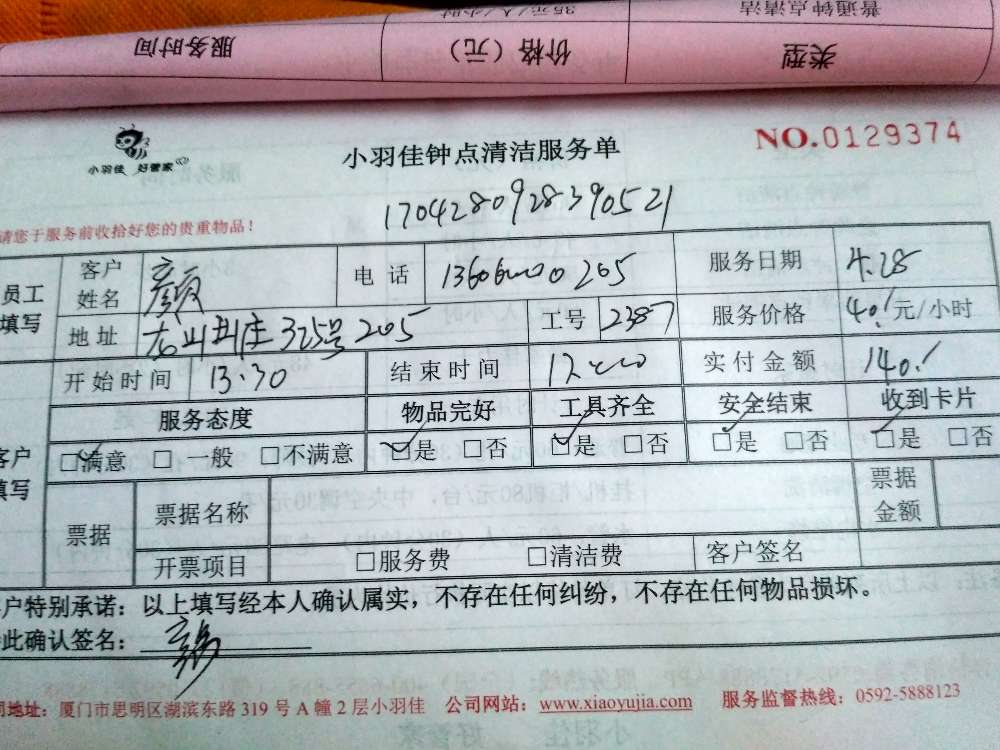 普通钟点清洁 35元/人/小时
类型 价格（元） 服务时间
小羽佳 好管家
小羽佳钟点清洁服务单
NO.0129374
170428092839 0521
请您于服务前收拾好您的贵重物品！
员工填写
客户姓名 颜 电话 服务日期 4.28
地址 325号205 工号 2387 服务价格 40 元/小时
开始时间 13.30 结束时间 实付金额 140
服务态度 物品完好 工具齐全 安全结束 收到卡片
客户填写
□满意 □一般 □不满意 □是 □否 □是 □否 □是 □否 □是 □否
票据 票据名称 票据金额
开票项目 □服务费 □清洁费 客户签名
户特别承诺：以上填写经本人确认属实，不存在任何纠纷，不存在任何物品损坏。
此确认签名：
司地址：厦门市思明区湖滨东路 319 号 A 幢 2 层小羽佳 公司网站：www.xiaoyujia.com 服务监督热线：0592-5888123